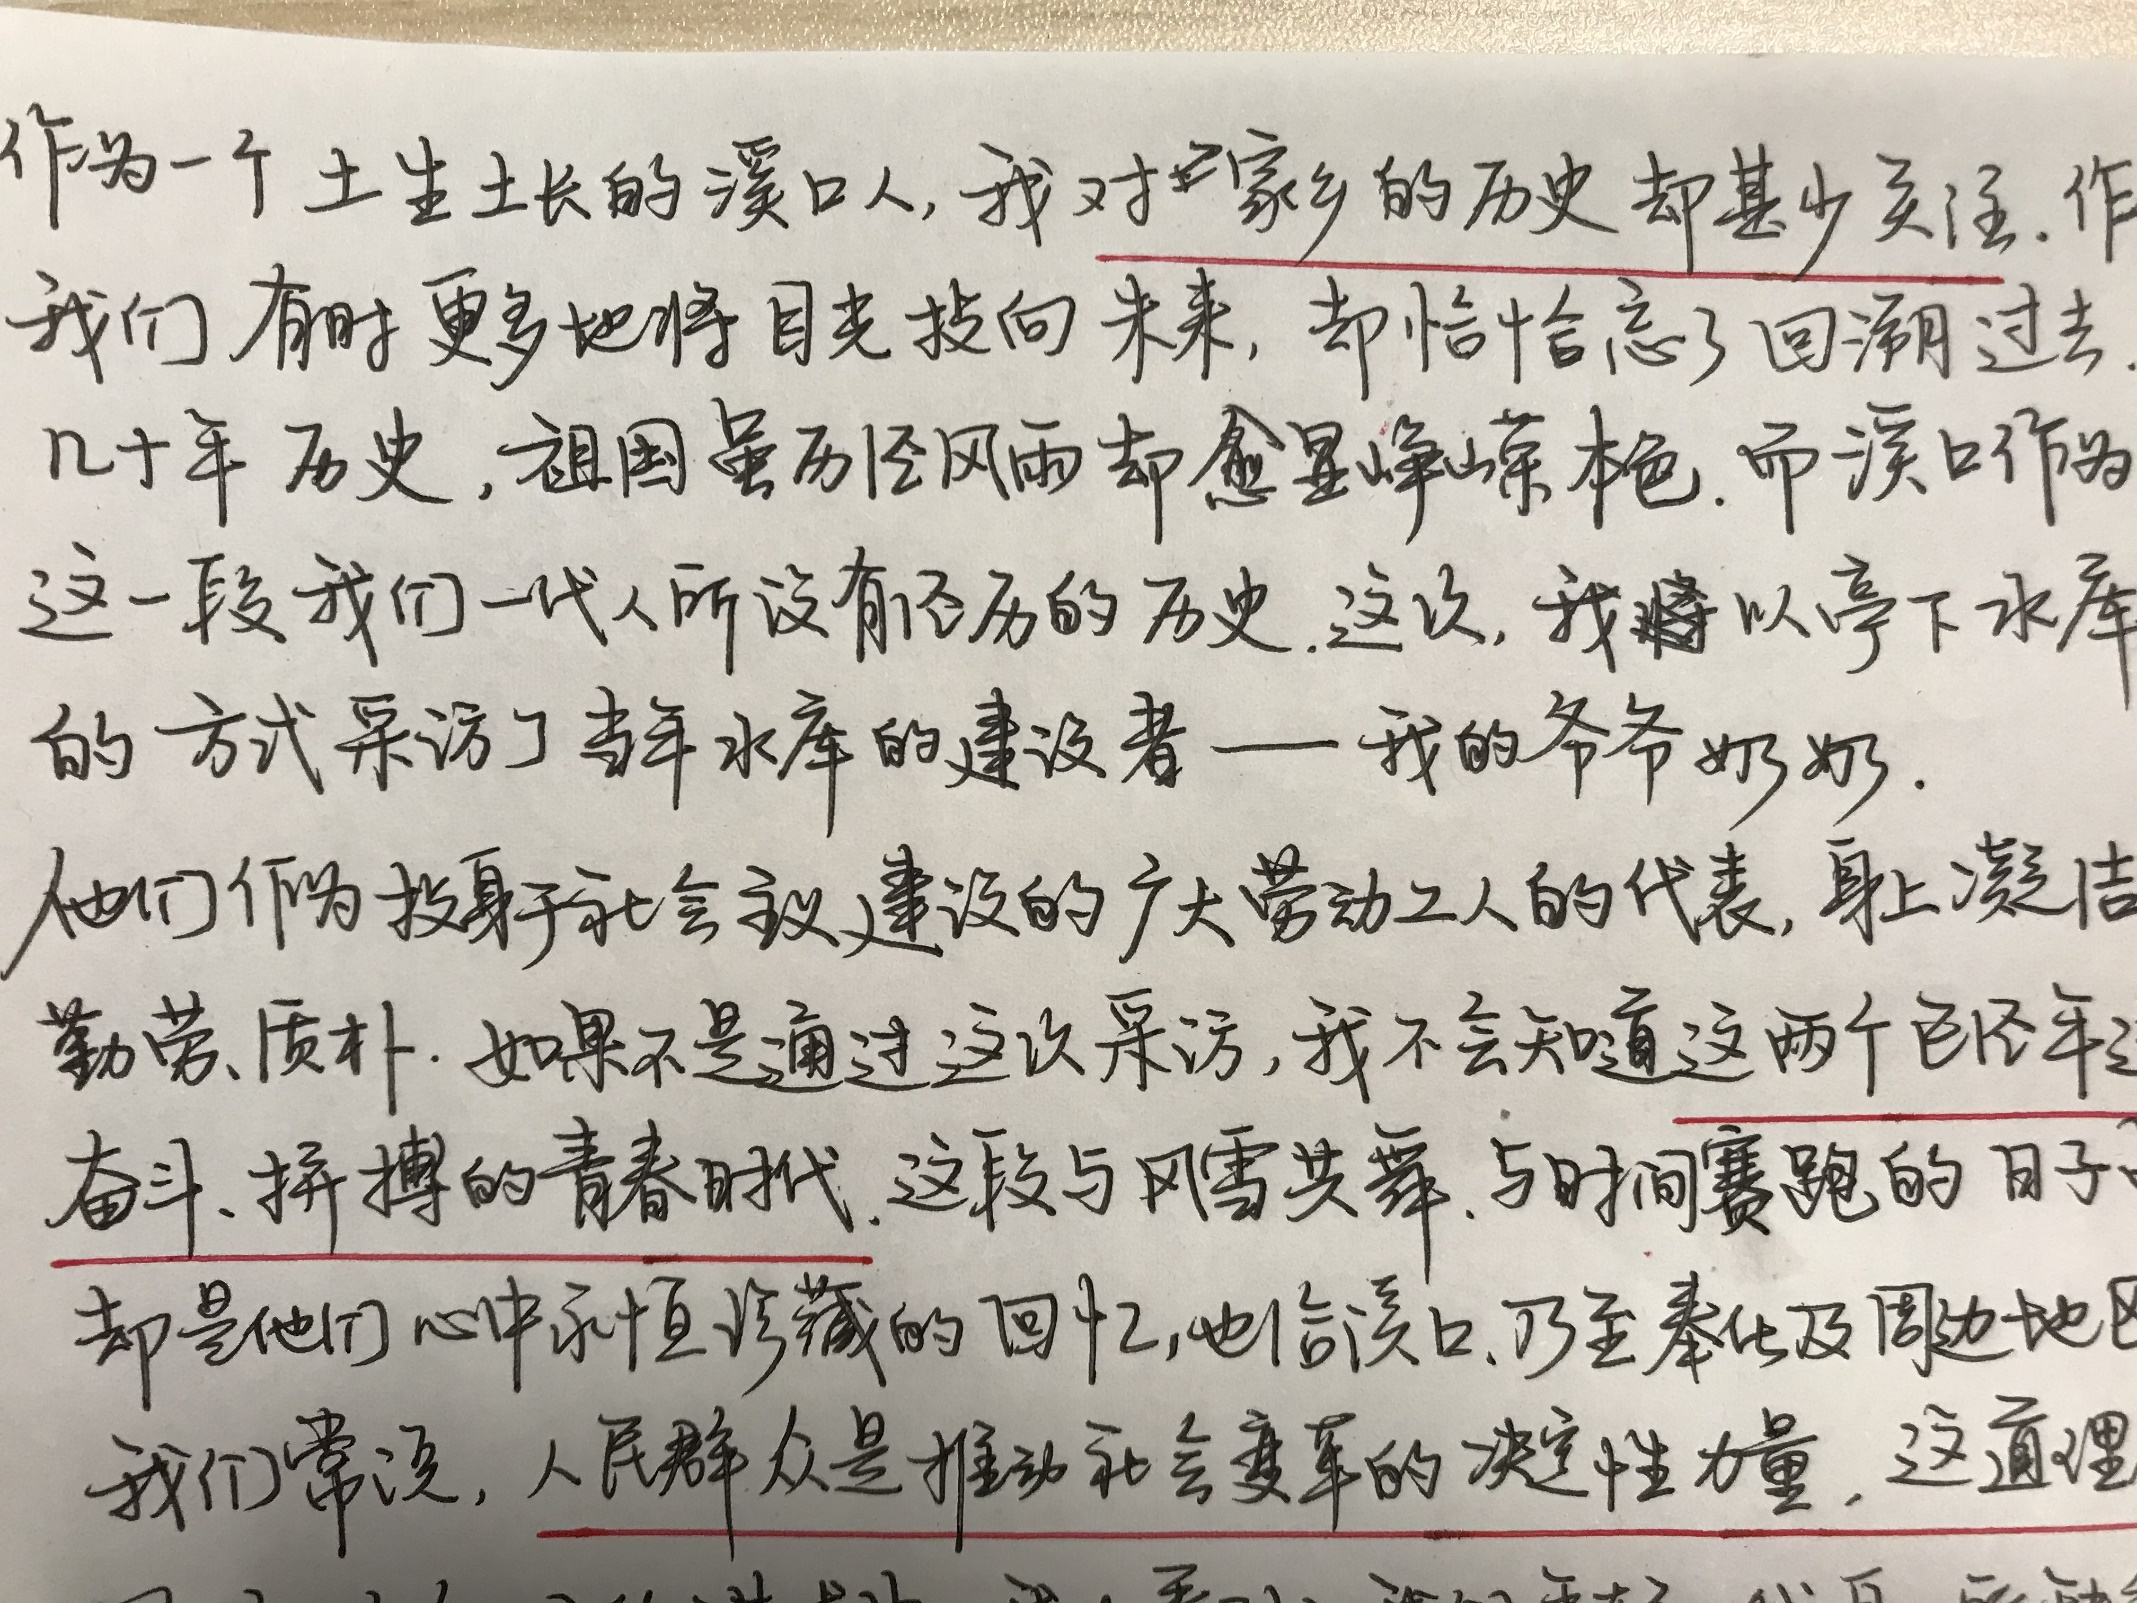 作为一个土生土长的溪口人,我对家乡的历史却甚少关注.作
我们有时更多地将目光投向未来,却恰恰忘了回溯过去.
几十年历史,祖国虽历经风雨却愈显峥嵘本色.而溪口作为
这一段我们一代人所没有经历的历史.这次,我将以亭下水库
的方式采访了当年水库的建设者——我的爷爷奶奶.
他们作为投身于社会主义建设的广大劳动工人的代表,身上凝结
勤劳、质朴.如果不是通过这次采访,我不会知道这两个已经年迈
奋斗、拼搏的青春时代.这段与风雪共舞、与时间赛跑的日子
却是他们心中永恒珍藏的回忆,也给溪口、乃至奉化及周边地区
我们常说,人民群众是推动社会变革的决定性力量,这道理